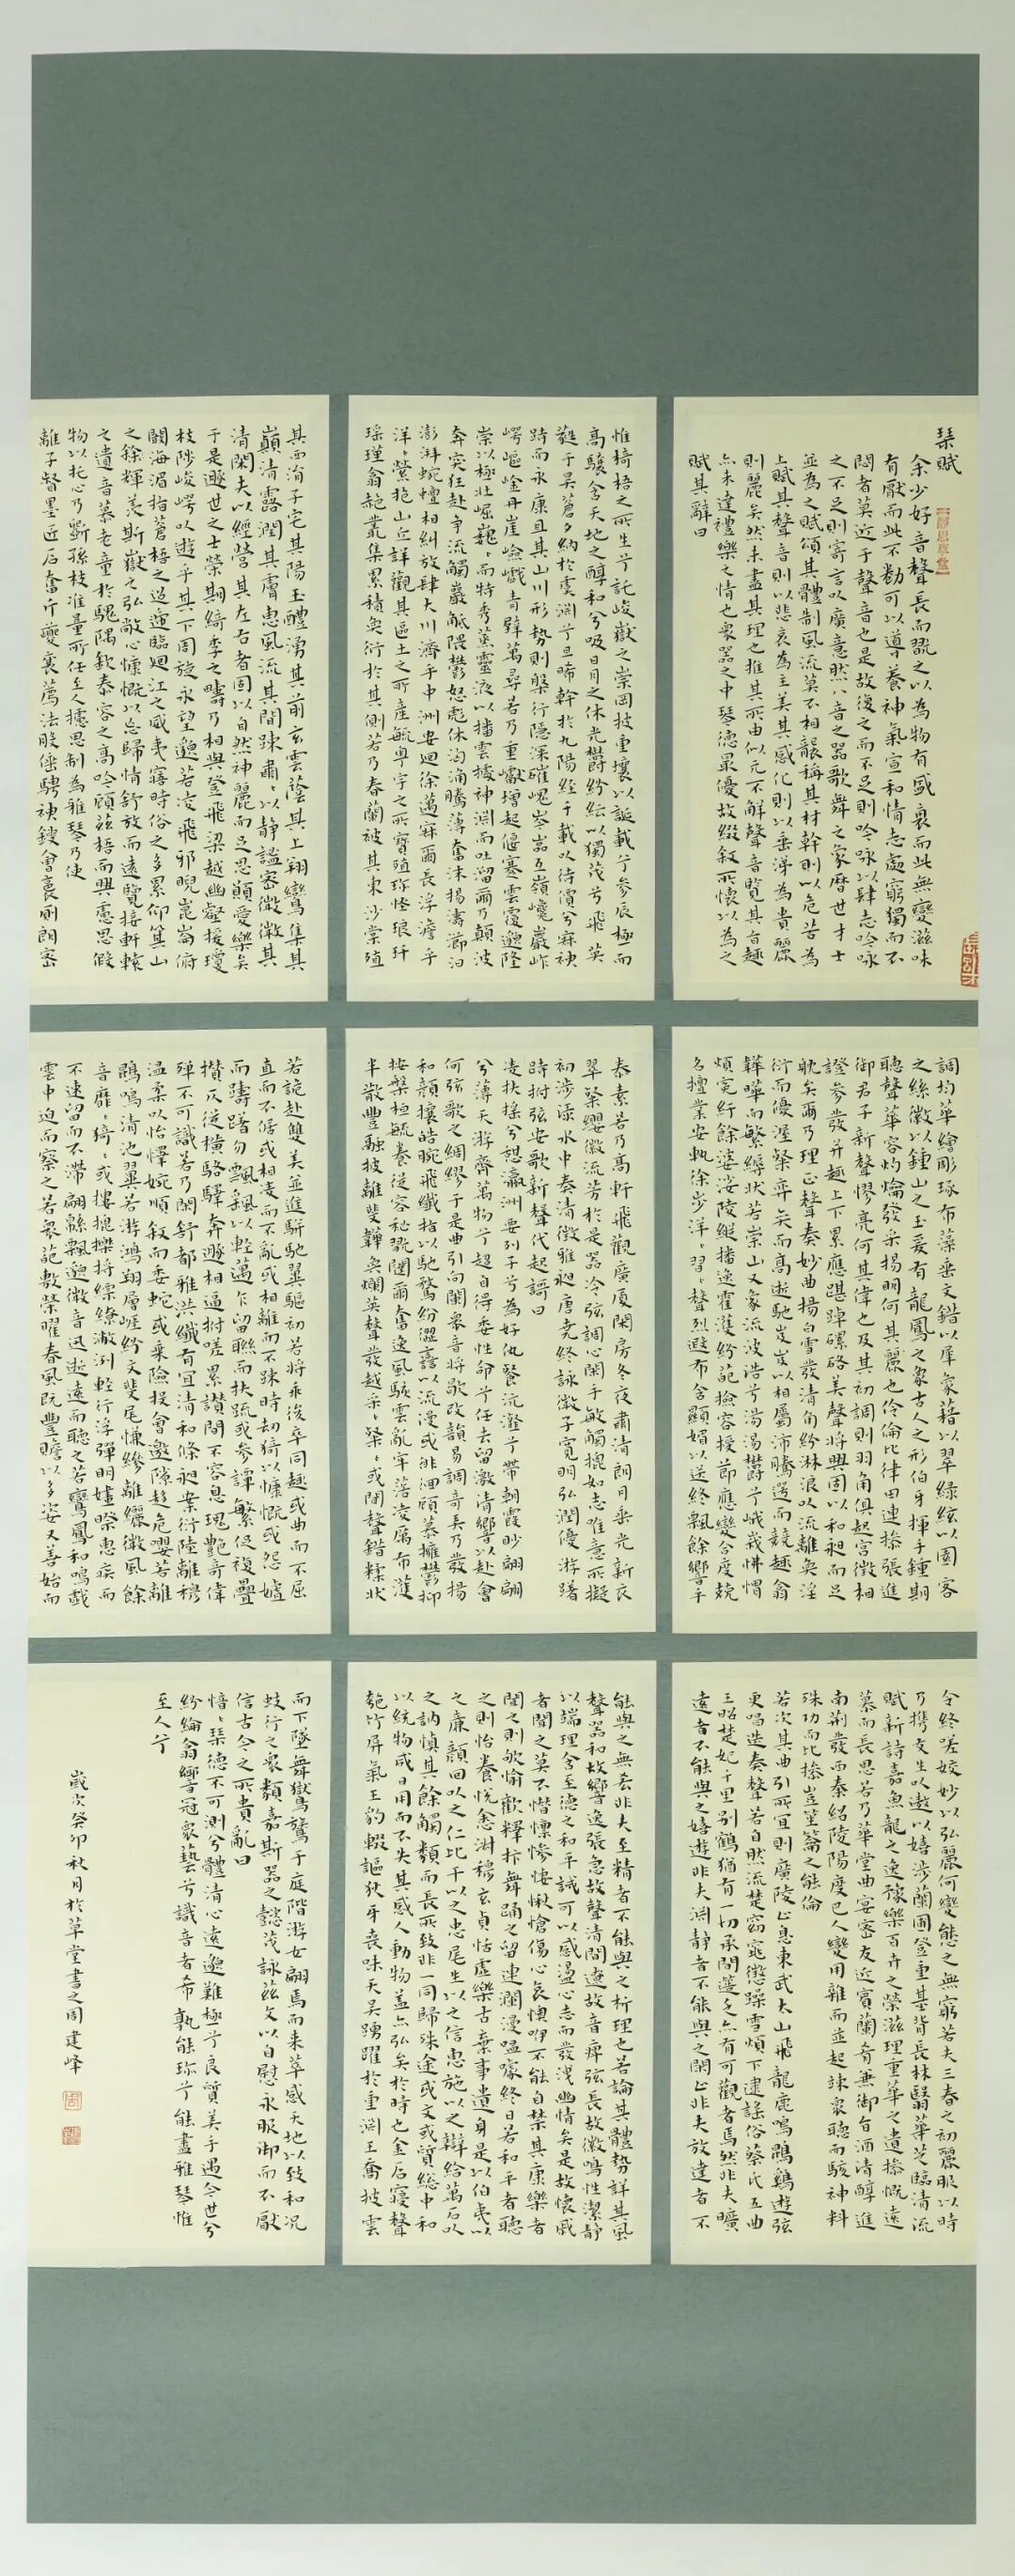 琴賦
余少好音聲長而翫之以為物有盛衰而此無變滋味
有厭而此不勌可以導養神氣宣和情志處窮獨而不
悶者莫近于聲音也是故復之而不足則吟咏以肆志吟咏
之不足則寄言以廣意然八音之器歌舞之象歷世才士
並為之賦頌其體制風流莫不相襲稱其材幹則以危苦為
上賦其聲音則以悲哀為主美其感化則以垂涕為貴麗
則麗矣然未盡其理也推其所由似元不解聲音覽其旨趣
亦未達禮樂之情也眾器之中琴德最優故綴敘所懷以為之
賦其辭曰
惟椅梧之所生兮託峻嶽之崇岡披重壤以誕載兮參辰極而
高驤含天地之醇和兮吸日月之休光鬱紛紜以獨茂兮飛英
蕤于昊蒼夕納於虞淵兮旦晞幹於九陽經千載以待價兮寂神
跱而永康且其山川形勢則盤紆隱深磪嵬岑嵓互嶺巉巖岞
崿嶇崟丹崖嶮巇青壁萬尋若乃重巘增起偃蹇雲覆邈隆
崇以極壯崛巍巍而特秀蒸靈液以播雲據神淵而吐溜爾乃顛波
奔突狂赴爭流觸巖觝隈鬱怒彪休洶涌騰薄奮沫揚濤瀄汩
澎湃蜿蟺相糾放肆大川濟乎中洲安回徐邁寂爾長浮澹乎
洋洋縈抱山丘詳觀其區土之所產毓奧宇之所寶殖珍怪琅玕
瑤瑾翕赩叢集累積奐衍於其側若乃春蘭被其東沙棠殖
其西涓子宅其陽玉醴湧其前玄雲蔭其上翔鸞集其
巔清露潤其膚惠風流其間竦肅肅以静謐密微微其
清閑夫以經營其左右者固以自然神麗而足思願愛樂矣
于是遯世之士榮期綺季之疇乃相與登飛梁越幽壑援瓊
枝陟峻崿以遊乎其下周旋永望邈若凌飛邪睨崑崙俯
闞海湄指蒼梧之迢遞臨迴江之威夷寤時俗之多累仰箕山
之餘輝羨斯嶽之弘敞心慷慨以忘歸情舒放而遠覽接軒轅
之遺音慕老童於騩隅欽泰容之高吟顧茲梧而興慮思假
物以託心乃斲孫枝准量所任至人攄思制為雅琴乃使
離子督墨匠石奮斤夔襄薦法般倕騁神鎪會裛厠朗密
調均華繪彫琢布藻垂文錯以犀象藉以翠綠絃以園客
之絲徽以鍾山之玉爰有龍鳳之象古人之形伯牙揮手鍾期
聽聲華容灼爚發采揚明何其麗也伶倫比律田連操張進
御君子新聲憀亮何其偉也及其初調則羽角俱起宮徵相
證參發并趣上下累應踸踔磥硌美聲將興固以和昶而足
耽矣爾乃理正聲奏妙曲揚白雪發清角紛淋浪以流離奐淫
衍而優渥粲奕奕而高逝馳岌岌以相屬沛騰遌而競趣翕
韡曄而繁縟狀若崇山又象流波浩兮湯湯鬱兮峨峨怫㥜
煩冤紆餘婆娑陵縱播逸霍濩紛葩檢容授節應變合度兢
名擅業安軌徐步洋洋習習聲烈遐布含顯媚以送終飄餘響乎
泰素若乃高軒飛觀廣厦閑房冬夜肅清朗月垂光新衣
翠粲纓徽流芳於是器冷弦調心閑手敏觸㧙如志唯意所擬
初涉淥水中奏清徵雅昶唐堯終詠微子寬明弘潤優游躇
跱拊弦安歌新聲代起謌曰
凌扶搖兮憩瀛洲要列子兮為好仇餐沆瀣兮帶朝霞眇翩翩
兮薄天游齊萬物兮超自得委性命兮任去留激清響以赴會
何弦歌之綢繆于是曲引向闌眾音將歇改韻易調奇弄乃發揚
和顏攘皓腕飛纖指以馳騖紛㒊譶以流漫或徘徊顧慕擁鬱抑
按盤桓毓養從容秘翫闥爾奮逸風駭雲亂牢落凌厲布濩
半散豐融披離斐韡奐爛英聲發越采采粲粲或間聲錯糅狀
若詭赴雙美並進駢馳翼驅初若將乖後卒同趣或曲而不屈
直而不倨或相凌而不亂或相離而不殊時劫掎以慷慨或怨㜘
而躊躇勿飄飖以輕邁乍留聯而扶疏或參譚繁促複疊
攢仄從橫駱驛奔遯相逼拊嗟累讚間不容息瑰艷奇偉
殫不可識若乃閑舒都雅洪纖有宜清和條昶案衍陸離穆
溫柔以怡懌婉順敘而委蛇或乘險投會邀隙趨危嚶若離
鵾鳴清池翼若游鴻翔層崖紛文斐尾慊縿離纚微風餘
音靡靡猗猗或摟㧙擽捋縹繚潎冽輕行浮彈明嫿㬠惠疾而
不速留而不滯翩緜飄邈微音迅逝遠而聽之若鸞鳳和鳴戲
雲中迫而察之若眾葩敷榮曜春風既豐贍以多姿又善始而
令終嗟姣妙以弘麗何變態之無窮若夫三春之初麗服以時
乃攜友生以遨以嬉涉蘭圃登重基背長林翳華芝臨清流
賦新詩嘉魚龍之逸豫樂百卉之榮滋理重華之遺操慨遠
慕而長思若乃華堂曲宴密友近賓蘭肴兼御旨酒清醇進
南荆發西秦紹陵陽度巴人變用雜而並起竦眾聽而駭神料
殊功而比操豈笙籥之能倫
若次其曲引所宜則廣陵止息東武太山飛龍鹿鳴鵾鷄遊弦
更唱迭奏聲若自然流楚窈窕懲躁雪煩下逮謠俗蔡氏五曲
王昭楚妃千里别鶴猶有一切承間簉乏亦有可觀者焉然非夫曠
遠者不能與之嬉遊非夫淵靜者不能與之閑止非夫放達者不
能與之無吝非夫至精者不能與之析理也若論其體勢詳其風
聲器和故響逸張急故聲清間遼故音痺弦長故徽鳴性潔靜
以端理含至德之和平誠可以感盪心志而發洩幽情矣是故懷戚
者聞之莫不憯懍慘悽愀愴傷心哀懊咿不能自禁其康樂者
聞之則欨愉歡釋抃舞踊溢留連瀾漫嗢噱終日若和平者聽
之則怡養悅悆淑穆玄真恬虛樂古棄事遺身是以伯夷以
之廉顏回以之仁比干以之忠尾生以之信惠施以之辯給萬石以
之訥慎其餘觸類而長所致非一同歸殊途或文或質總中和
以統物咸日用而不失其感人動物蓋亦弘矣於時也金石寢聲
匏竹屏氣王豹輟謳狄牙喪味天吳踴躍於重淵王喬披雲
而下墜舞鸑鷟于庭階游女飄焉而來萃感天地以致和况
蚑行之眾類嘉斯器之懿茂詠茲文以自慰永服御而不厭
信古今之所貴亂曰
愔愔琴德不可測兮體清心遠邈難極兮良質美手遇今世兮
紛綸翕響冠眾藝兮識音者希孰能珍兮能盡雅琴惟
至人兮
歲次癸卯秋月於草堂書之周建峰